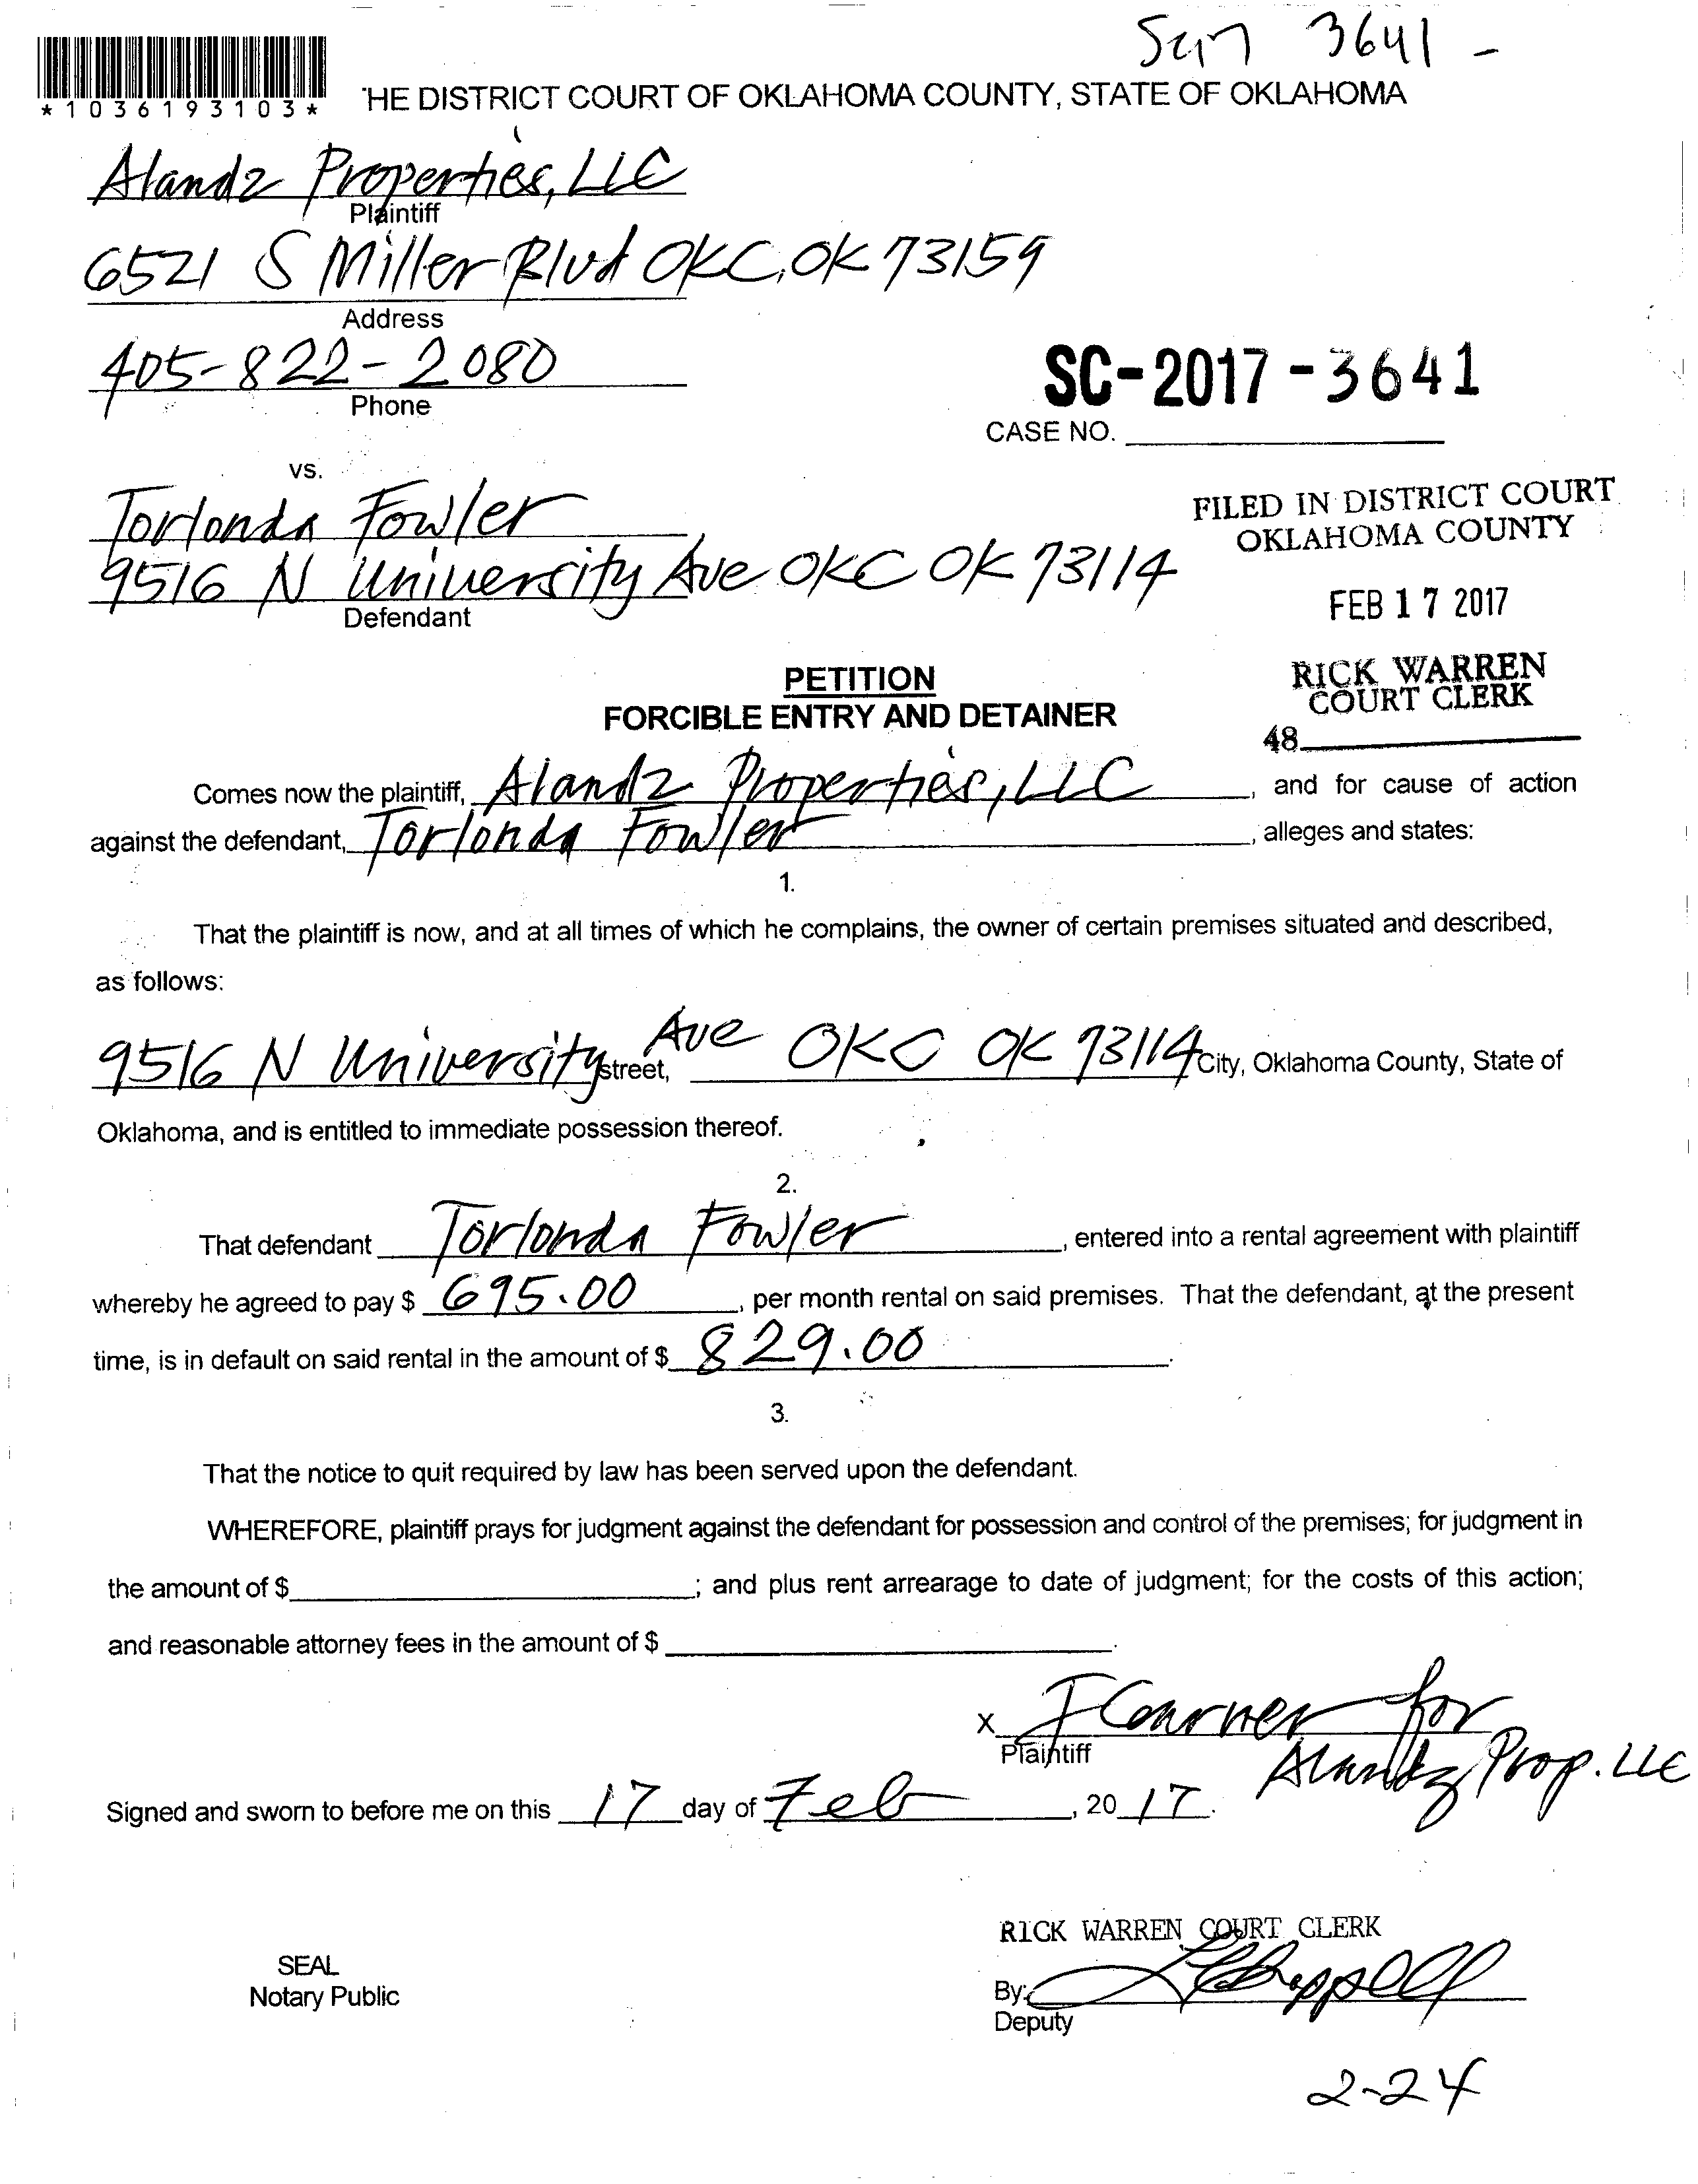 3641 -
*1036193103*
HE DISTRICT COURT OF OKLAHOMA COUNTY, STATE OF OKLAHOMA
Alandz Properties, LLC
Plaintiff
6521 S Miller Blvd OKC, OK 73159
Address
405-822-2080
Phone
SC-2017-3641
CASE NO.
vs.
Torlonda Fowler
9516 N University Ave OKC OK 73114
Defendant
FILED IN DISTRICT COURT
OKLAHOMA COUNTY
FEB 17 2017
RICK WARREN
COURT CLERK
48
PETITION
FORCIBLE ENTRY AND DETAINER
Comes now the plaintiff, Alandz Properties, LLC, and for cause of action
against the defendant, Torlonda Fowler, alleges and states:
1.
That the plaintiff is now, and at all times of which he complains, the owner of certain premises situated and described,
as follows:
9516 N University street, Ave OKC OK 73114 City, Oklahoma County, State of
Oklahoma, and is entitled to immediate possession thereof.
2.
That defendant Torlonda Fowler, entered into a rental agreement with plaintiff
whereby he agreed to pay $ 695.00, per month rental on said premises. That the defendant, at the present
time, is in default on said rental in the amount of $ 829.00.
3.
That the notice to quit required by law has been served upon the defendant.
WHEREFORE, plaintiff prays for judgment against the defendant for possession and control of the premises; for judgment in
the amount of $ ; and plus rent arrearage to date of judgment; for the costs of this action;
and reasonable attorney fees in the amount of $ .
X for
Plaintiff
Alandz Prop. LLC
Signed and sworn to before me on this 17 day of Feb, 2017.
RICK WARREN COURT CLERK
SEAL
Notary Public
By:
Deputy
2-24